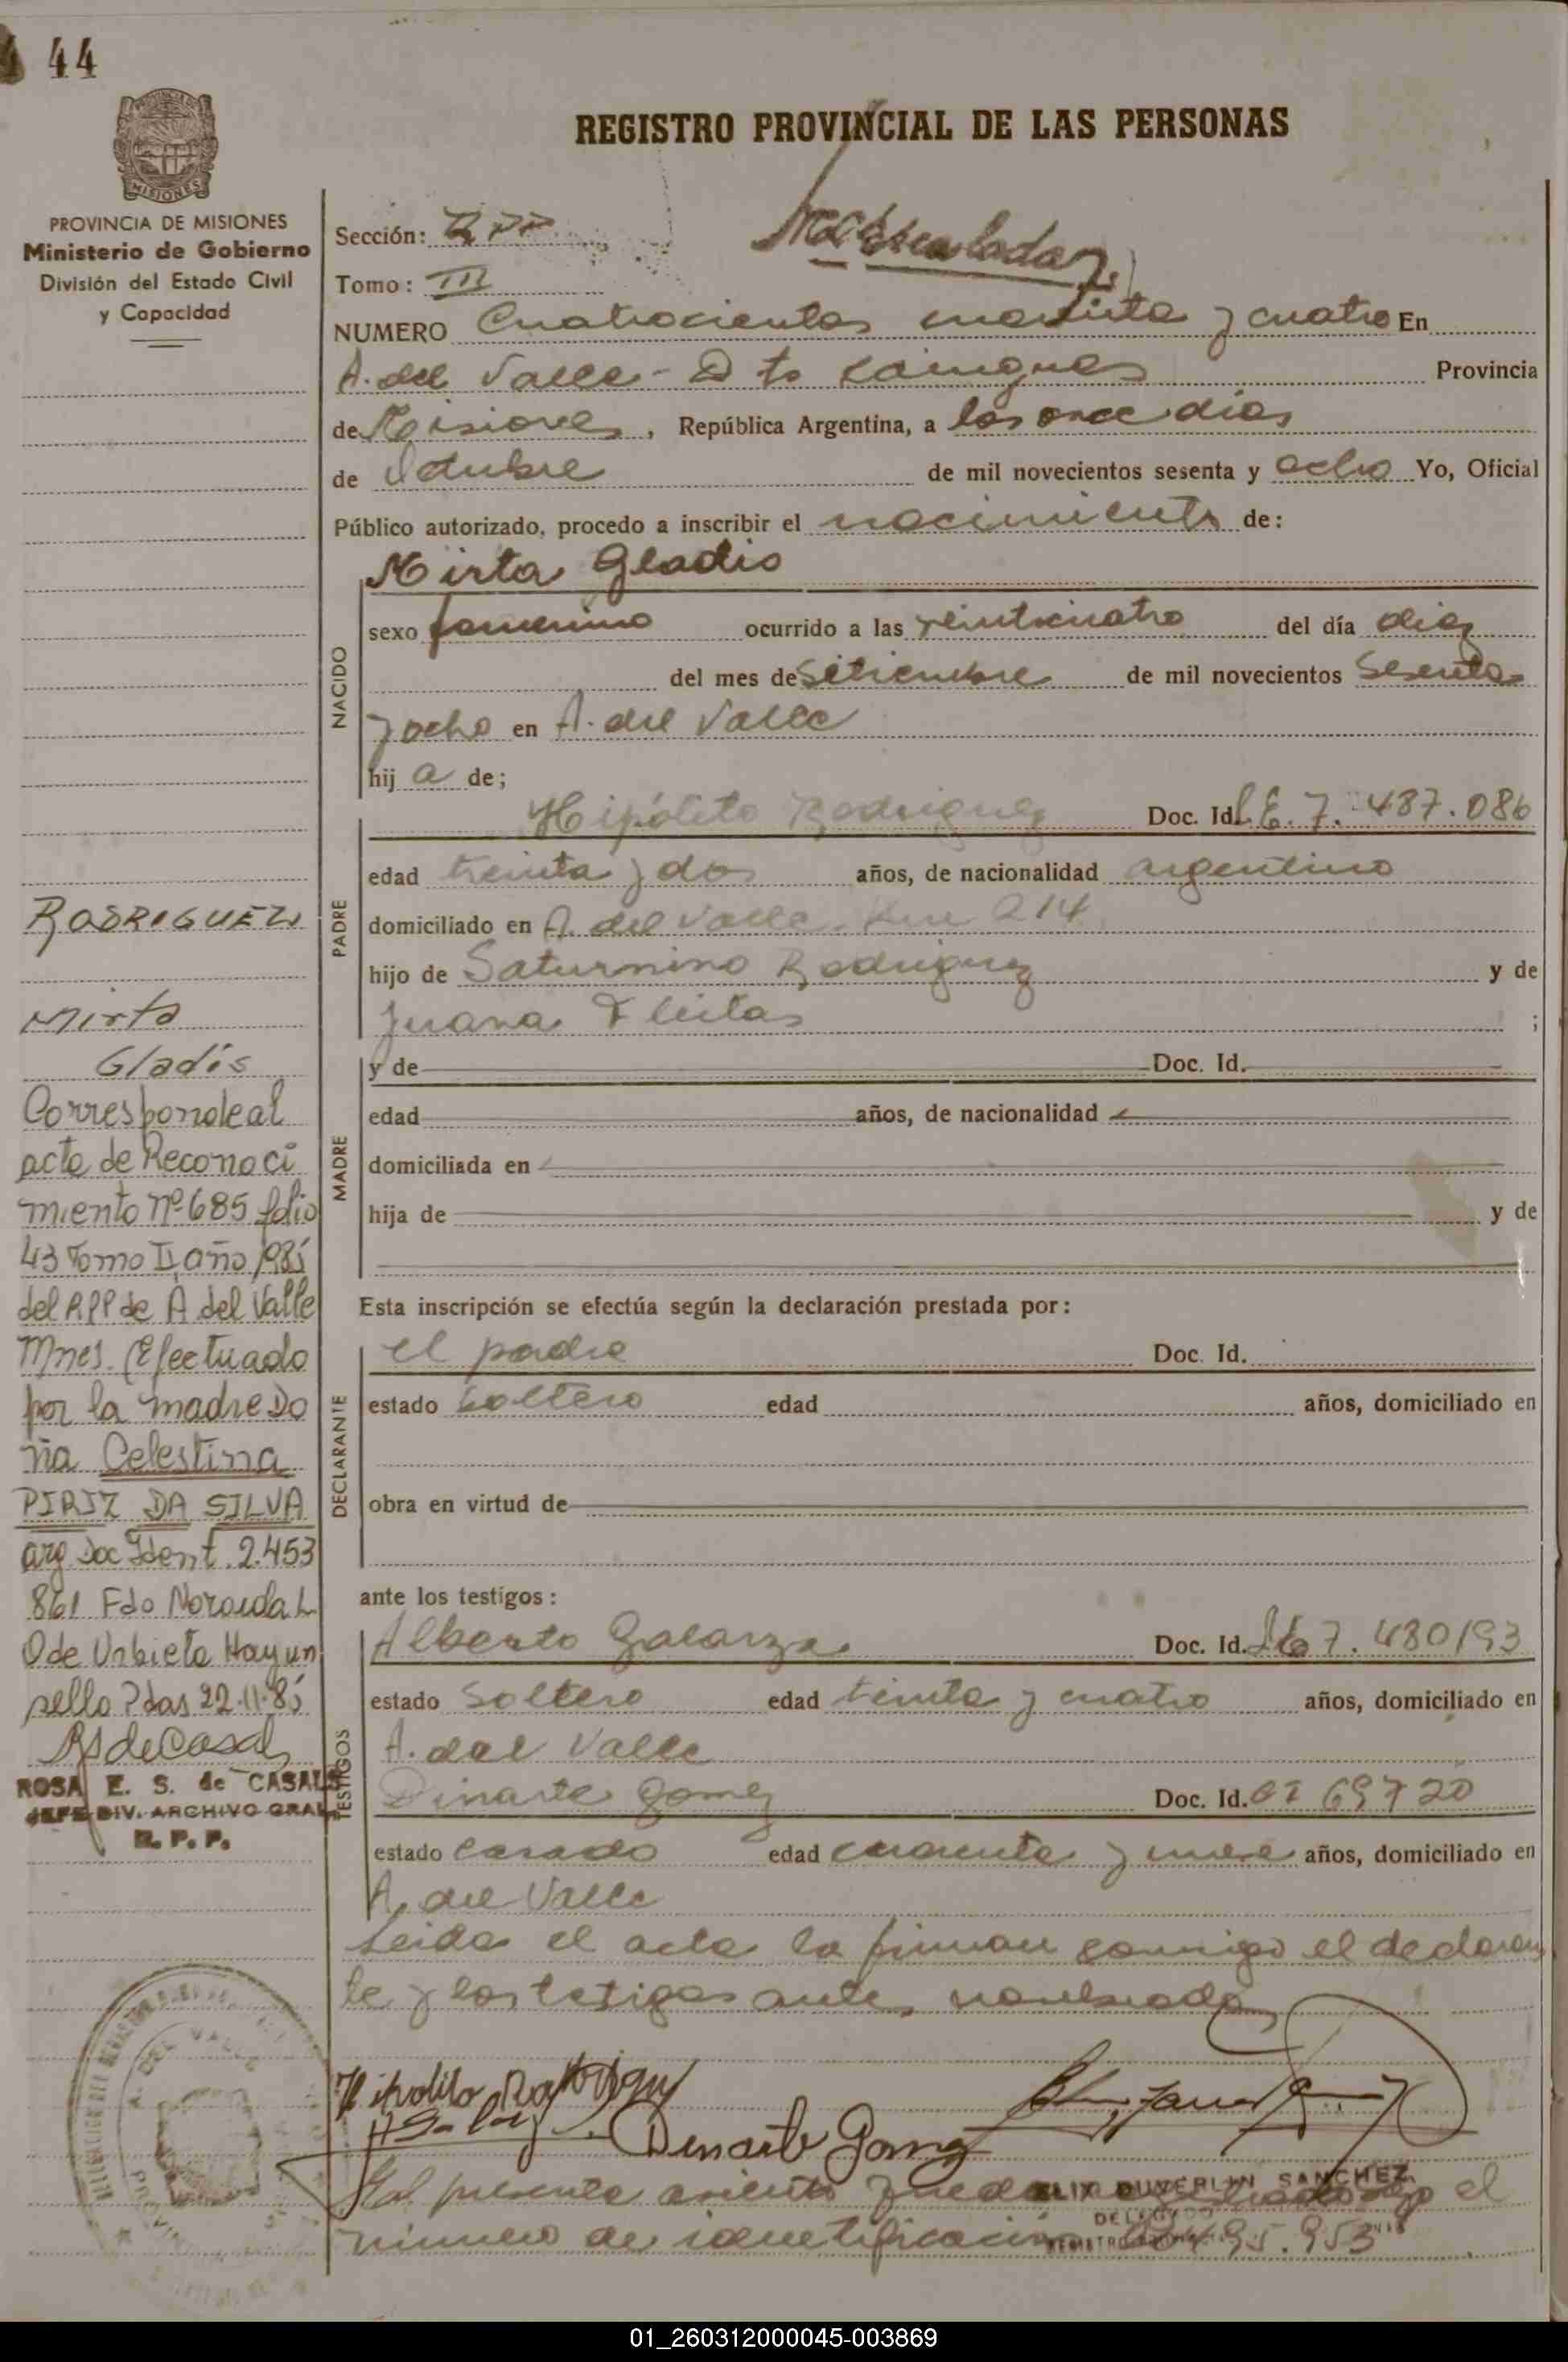 44
PROVINCIA DE MISIONES
Ministerio de Gobierno
División del Estado Civil
y Capacidad
REGISTRO PROVINCIAL DE LAS PERSONAS
Sección: RPP
Tomo: III
NUMERO Cuatrocientos cuarenta y cuatro En
A. del Valle - Dto Cainguas Provincia
de Misiones, República Argentina, a los once dias
de Octubre de mil novecientos sesenta y ocho Yo, Oficial
Público autorizado, procedo a inscribir el nacimiento de:
NACIDO
Mirta Gladis
sexo femenino ocurrido a las veinticuatro del día diez
del mes de Setiembre de mil novecientos Sesenta
y ocho en A. del Valle
hij a de;
PADRE
Hipólito Rodriguez Doc. Id. L.E. 7.487.086
edad treinta y dos años, de nacionalidad argentino
domiciliado en A. del Valle. Km 214
hijo de Saturnino Rodriguez y de
Juana Fleitas ;
MADRE
y de Doc. Id.
edad años, de nacionalidad
domiciliada en
hija de y de
Esta inscripción se efectúa según la declaración prestada por:
DECLARANTE
el padre Doc. Id.
estado Soltero edad años, domiciliado en
obra en virtud de
ante los testigos:
TESTIGOS
Alberto Galarza Doc. Id. LE 7.480193
estado Soltero edad treinta y cuatro años, domiciliado en
A. del Valle
Dinarte Gomez Doc. Id. CI 69720
estado casado edad cuarenta y nueve años, domiciliado en
A. del Valle
Leida el acta la firman conmigo el declaran
te y los testigos antes nombrados
Hipolito Rodriguez
Dinarte Gomez
el presente asiento queda el
numero de identificación 95.953
SANCHEZ
DELEGADO
RODRIGUEZ
Mirta
Gladis
Corresponde al
acta de Reconoci
miento Nº 685 folio
43 Tomo II año 1985
del RPP de A del Valle
Mnes. (Efectuado
por la madre Do
ña Celestina
PIRIZ DA SILVA
arg Doc Ident. 2.453
861 Fdo Noroida L
O de Urbieta Hay un
sello Pdas 22.11.85
RS de Casals
ROSA E. S. de CASALS
JEFE DIV. ARCHIVO GRAL
R. P. P.
A. DEL VALLE
01_260312000045-003869